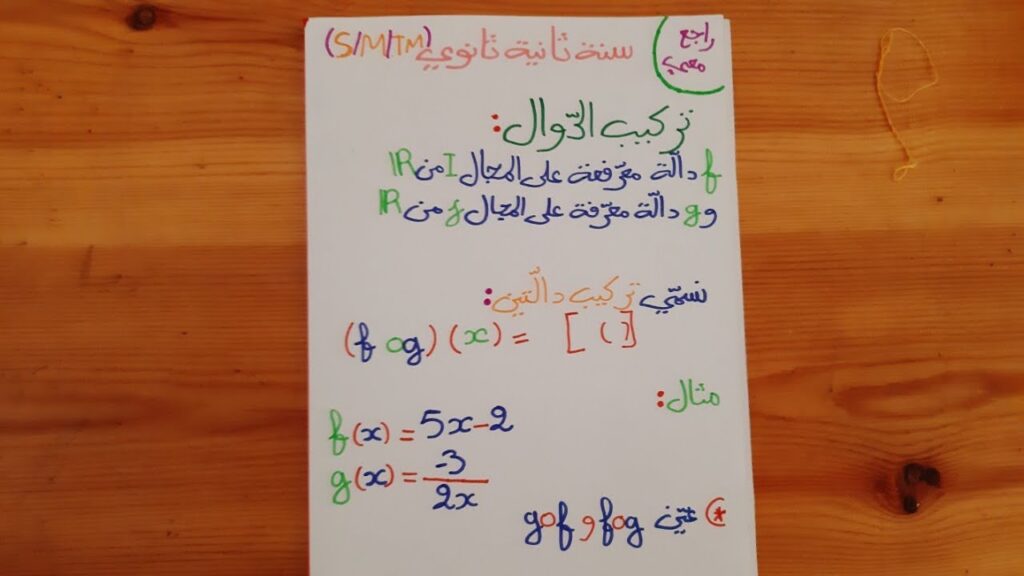 راجع معي
سنة ثانية ثانوي (S/M/TM)
تركيب الدّوال:
f دالّة معرّفة على المجال I من IR
و g دالّة معرّفة على المجال J من IR
نسمّي تركيب دالّتين:
(f o g) (x) = [ ( ) ]
مثال:
f(x) = 5x-2
g(x) = -3/2x
* عيّن fog و gof